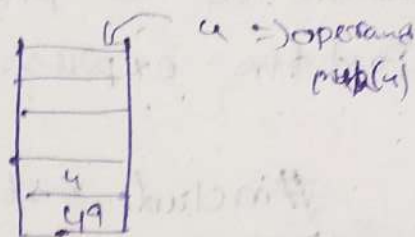 4 => operand
push(4)
4
49